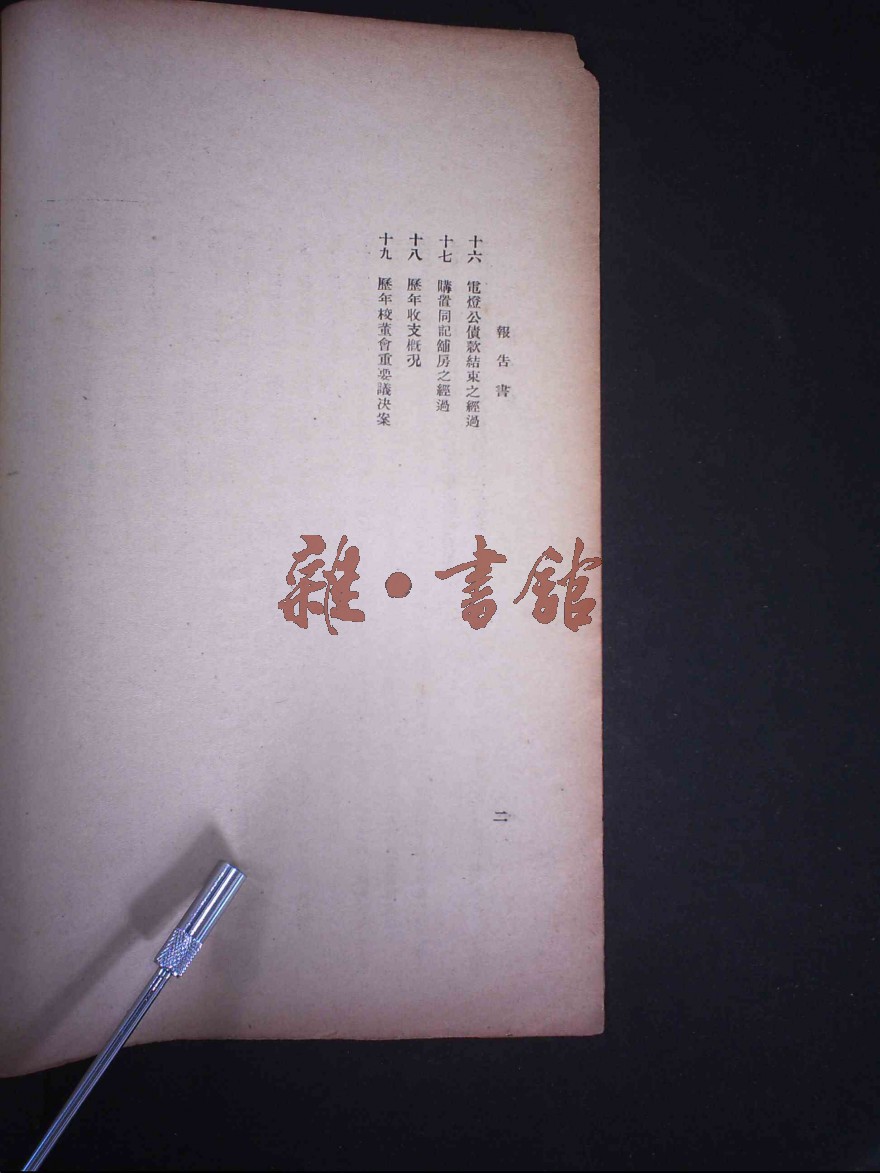 報告書
十六 電燈公債款結束之經過
十七 購置同記舖房之經過
十八 歷年收支概況
十九 歷年校董會重要議決案
二
雜·書館